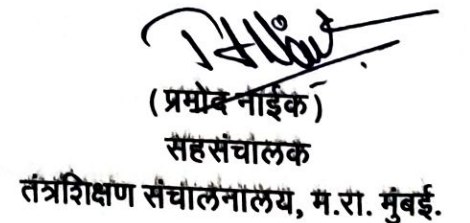 (प्रमोद नाईक)
सहसंचालक
तंत्रशिक्षण संचालनालय, म.रा. मुंबई.